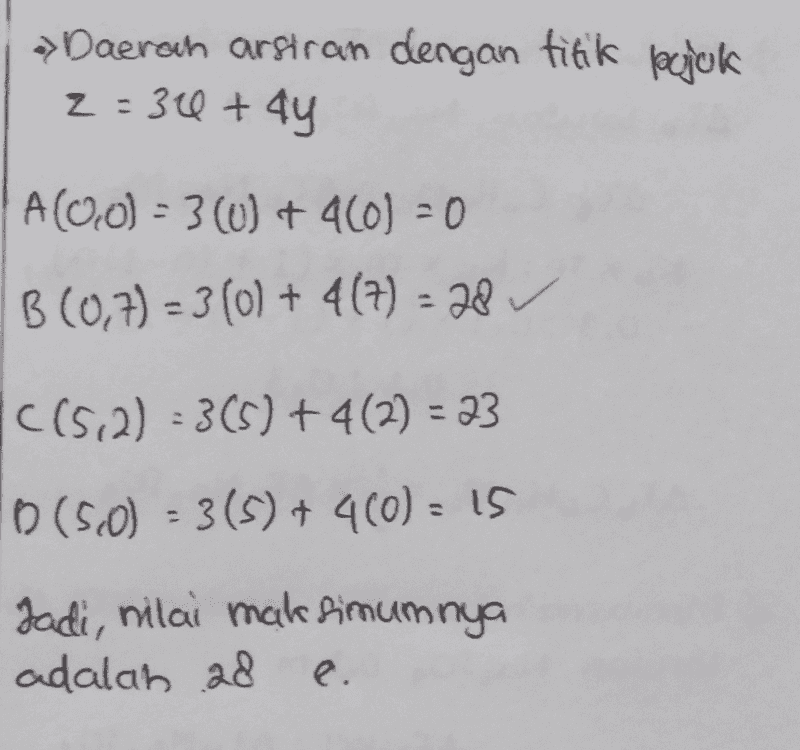 → Daerah arsiran dengan titik pojok
z = 3x + 4y
A(0,0) = 3(0) + 4(0) = 0
B(0,7) = 3(0) + 4(7) = 28 ✓
C(5,2) = 3(5) + 4(2) = 23
D(5,0) = 3(5) + 4(0) = 15
Jadi, nilai maksimumnya
adalah 28 e.